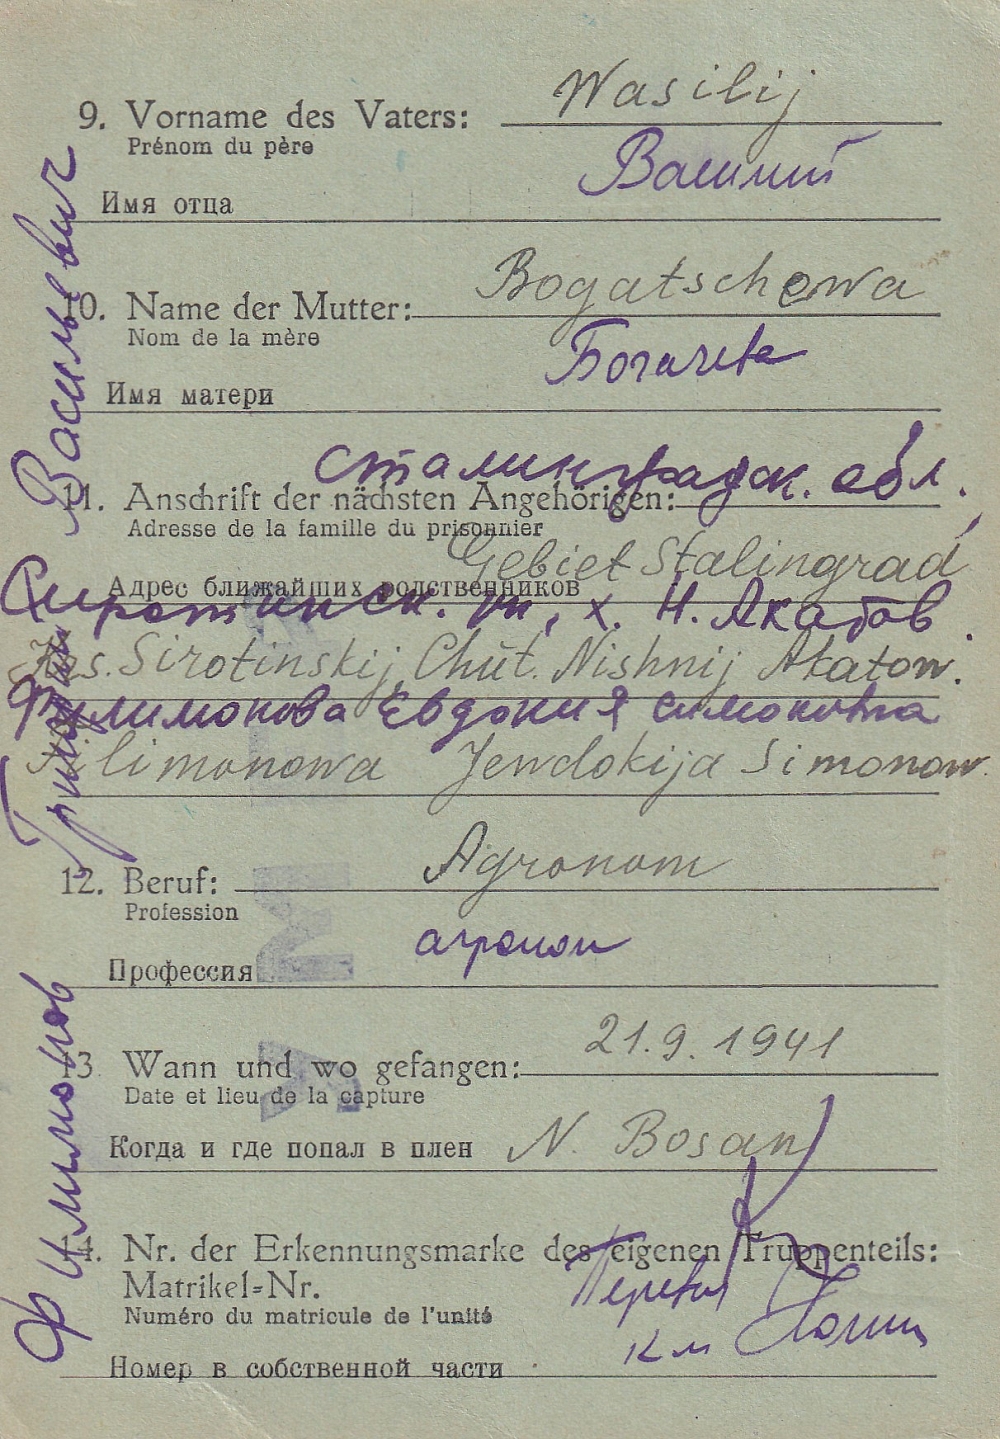 Wasilij
9. Vorname des Vaters:
Prénom du père
Василий
Имя отца
Bogatschewa
10. Name der Mutter:
Nom de la mère
Богачева
Имя матери
Сталинградск. обл.
11. Anschrift der nächsten Angehörigen:
Adresse de la famille du prisonnier
Gebiet Stalingrad
Адрес ближайших родственников
Сиротинск. х. Н. Акатов.
Sirotinskij, Chut. Nishnij Akatow.
Филимонова Евдокия Симоновна
Filimonowa Jewdokija Simonow.
Agronom
12. Beruf:
Profession
агроном
Профессия
21.9.1941
13 Wann und wo gefangen:
Date et lieu de la capture
Когда и где попал в плен
N. Bosan
14. Nr. der Erkennungsmarke des eigenen Truppenteils:
Matrikel=Nr.
Numéro du matricule de l'unité
Перевел
Номер в собственной части
Филимонов
Григорий
Васильевич